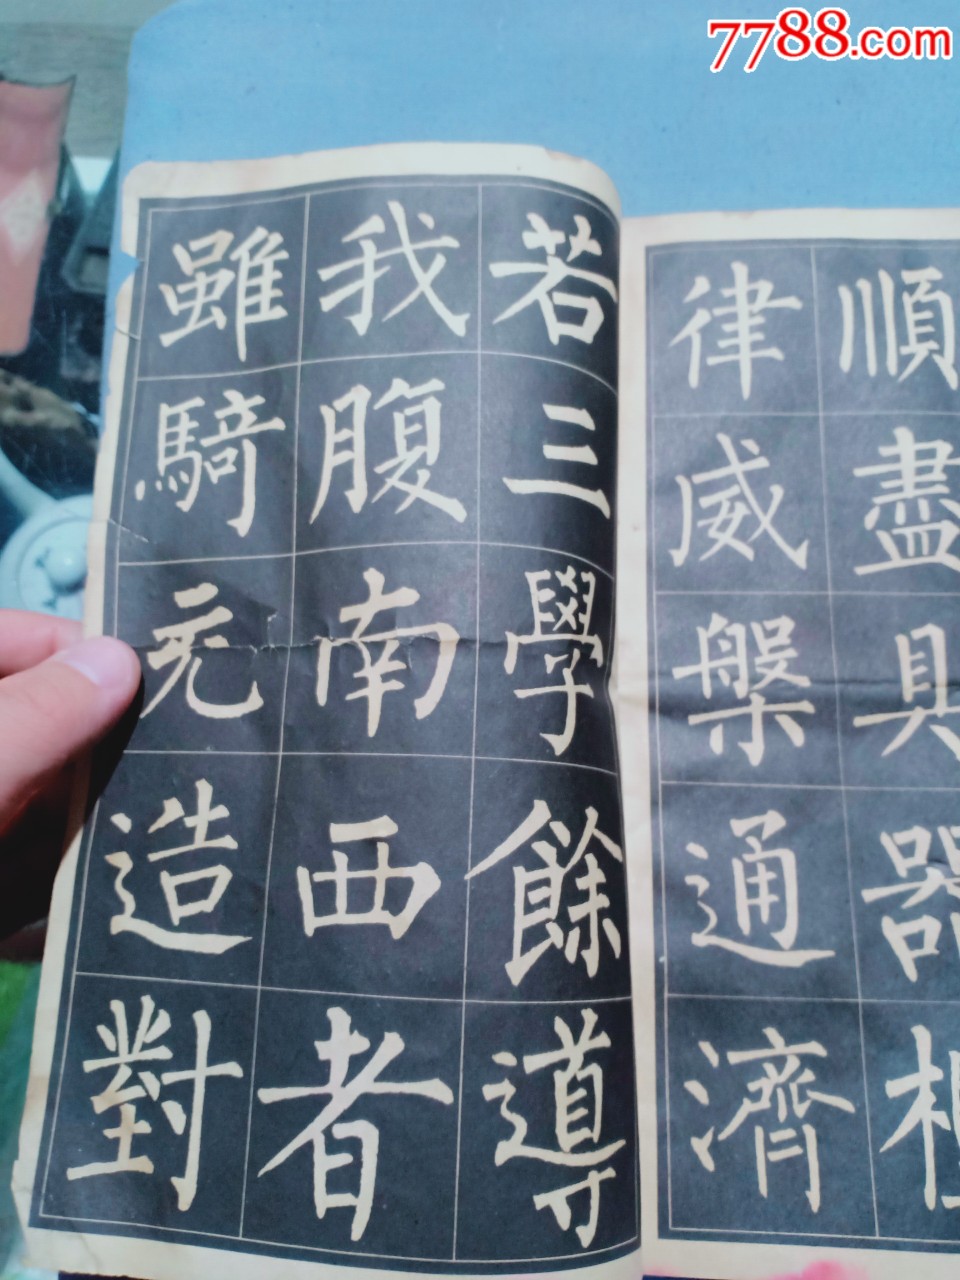 7788.com
順盡具器相
律威槃通濟
若三學餘導
我腹南西者
雖騎充造對